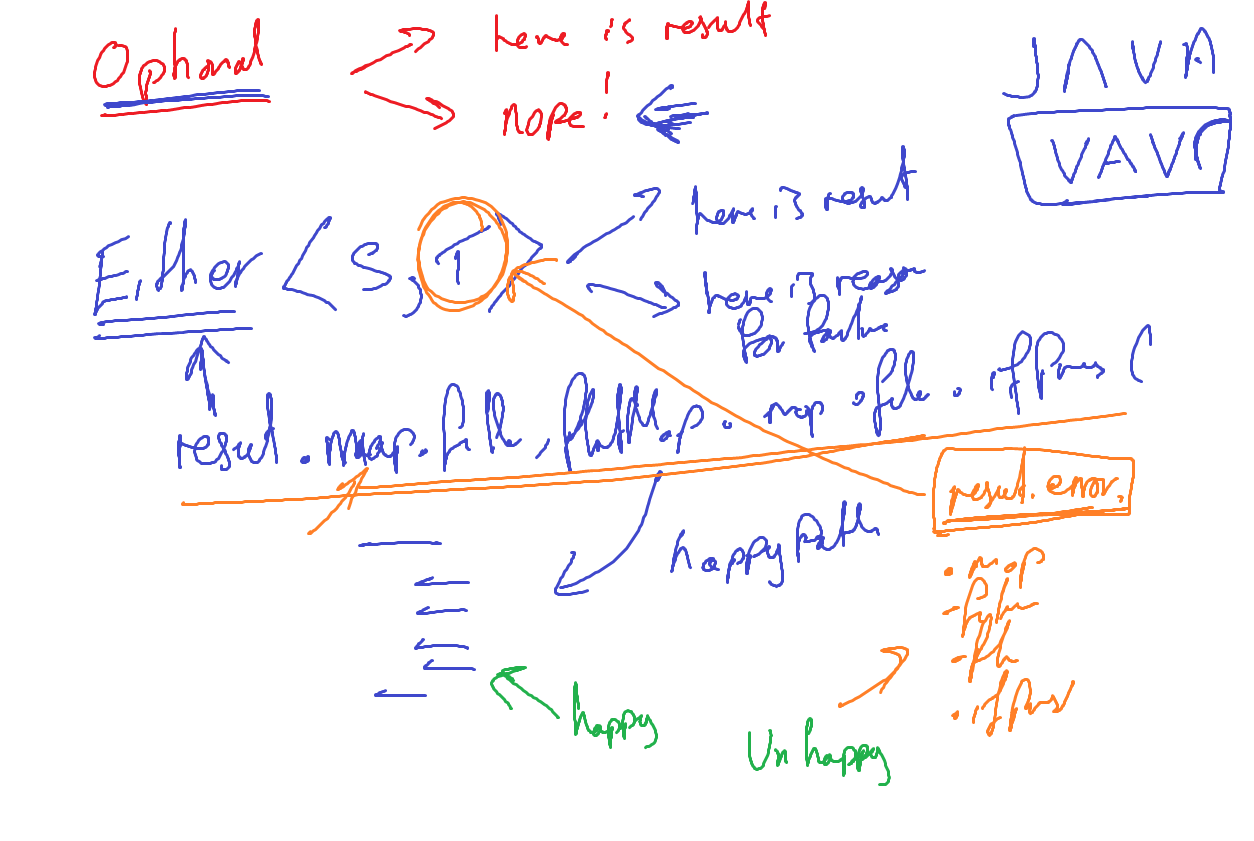 Optional
here is result
nope!
JAVA
VAVR
Either < S, T >
here is result
here is reason
for failure
result . map . filte , flatMap . map . file . ifPres (
result. error.
happy path
. map
- flh
. ifPres
happy
Un happy